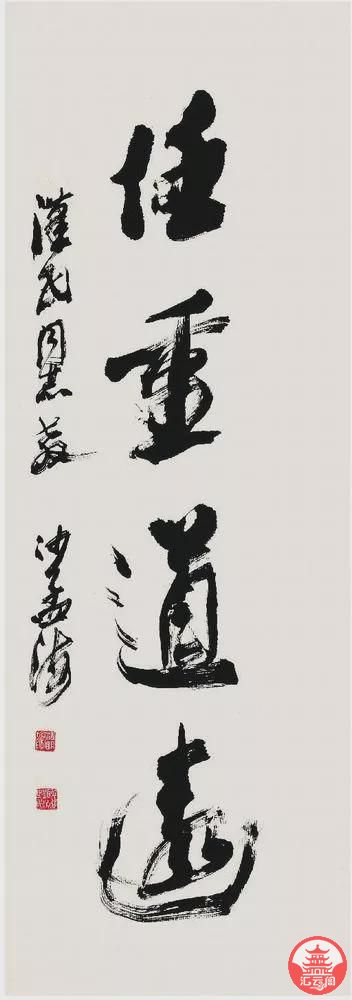 任重道遠
漢民同志教
沙孟海
汇云阁